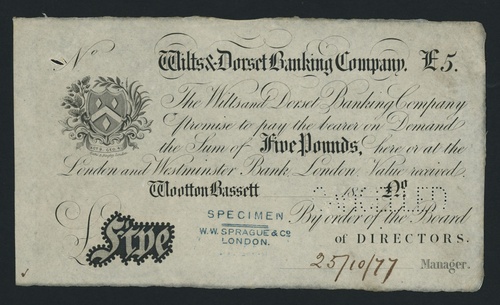 No Wilts & Dorset Banking Company. £5.
The Wilts and Dorset Banking Company
Promise to pay the bearer on Demand
the Sum of Five Pounds, here or at the
London and Westminster Bank, London Value received
Wootton Bassett 18 No
SPECIMEN
By order of the Board
W.W. SPRAGUE & Co
LONDON.
of DIRECTORS.
£ Five
25/10/77 Manager.